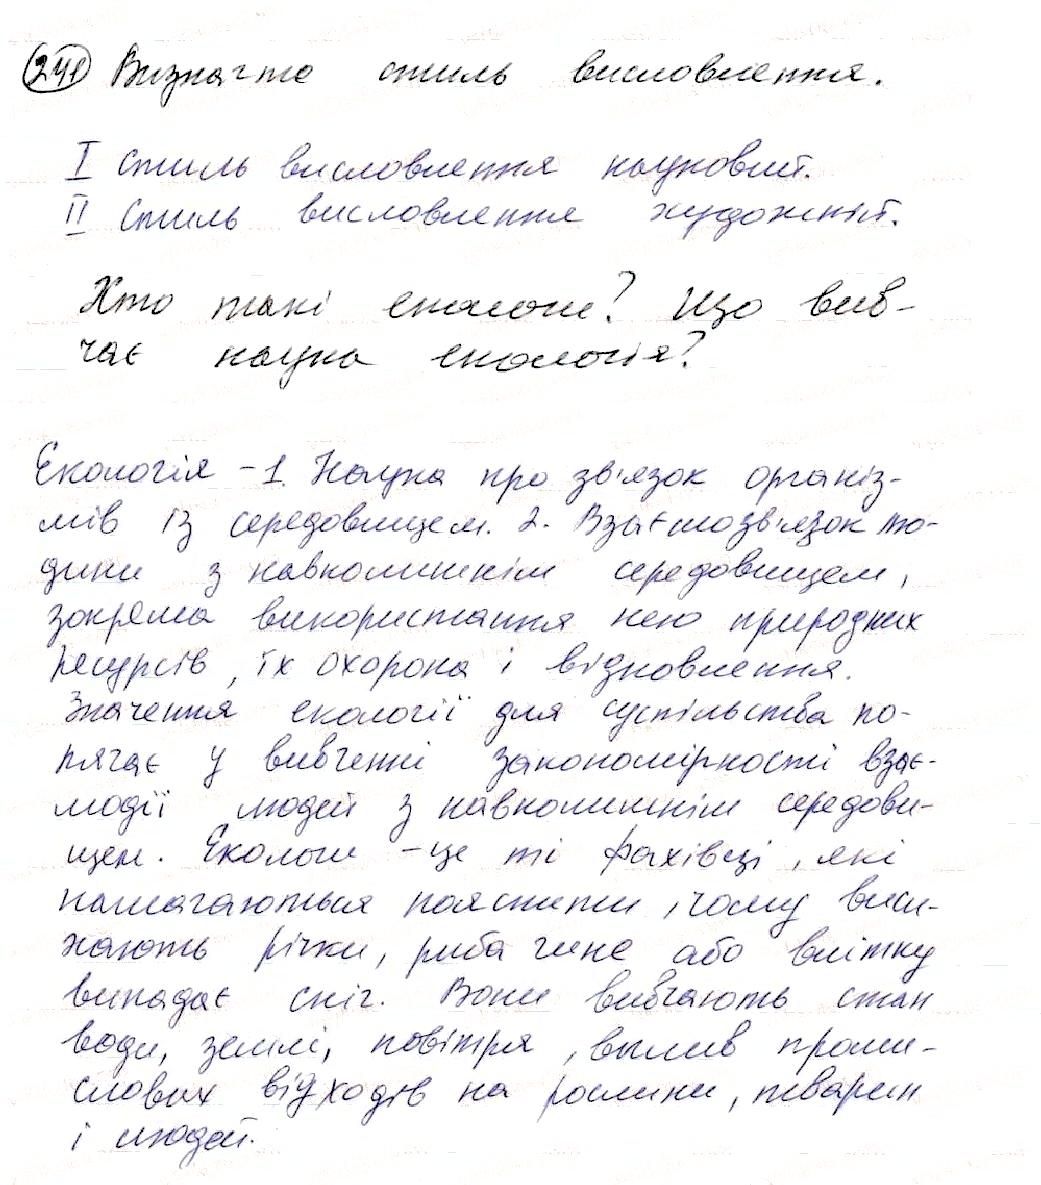 241 Визначте стиль висловлення.
I Стиль висловлення науковий.
II Стиль висловлення художній.
Хто такі екологи? Що вив-
чає наука екологія?
Екологія - 1. Наука про зв'язок організ-
мів із середовищем. 2. Взаємозв'язок лю-
дини з навколишнім середовищем,
зокрема використання нею природних
ресурсів, їх охорона і відновлення.
Значення екології для суспільства по-
лягає у вивченні закономірності взає-
модії людей з навколишнім середови-
щем. Екологи - це ті фахівці, які
намагаються пояснити, чому виси-
хають річки, риба гине або влітку
випадає сніг. Вони вивчають стан
води, землі, повітря, вплив проми-
слових відходів на рослини, тварин
і людей.